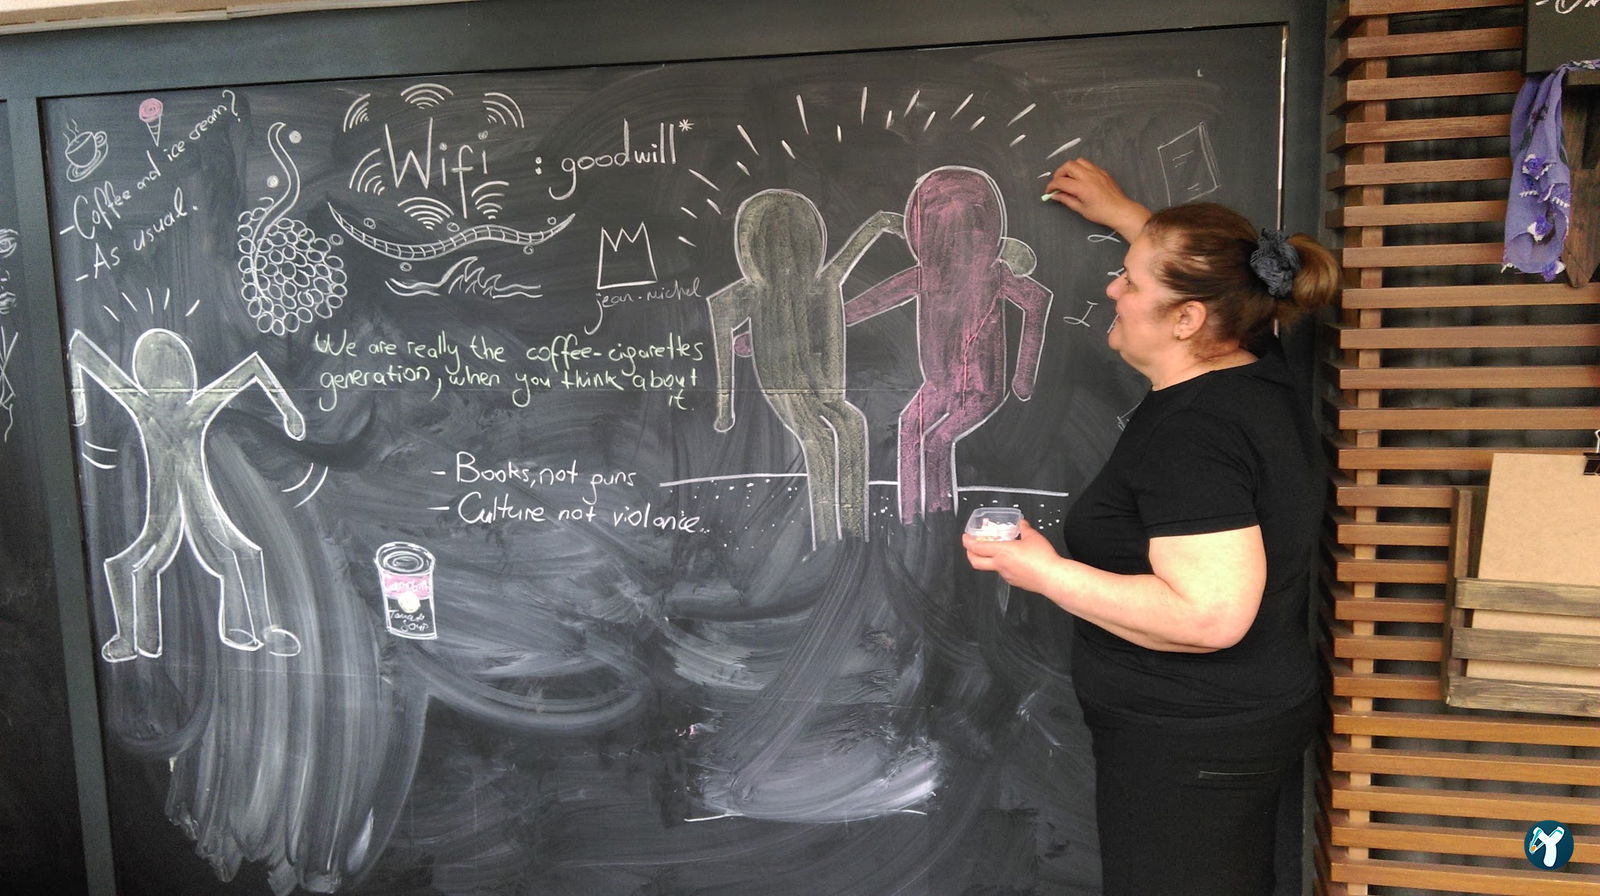 - Coffee and ice cream?
- As usual.
Wifi : goodwill*
jean-michel
We are really the coffee-cigarettes
generation, when you think about
it.
- Books, not guns
- Culture not violance..
Tomato
Soup